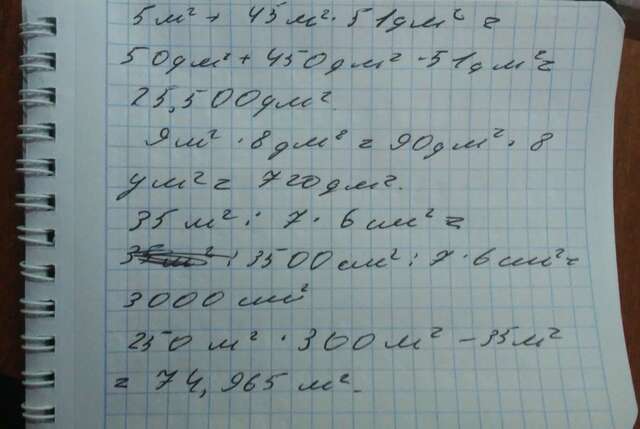 5 м² + 45 м² · 51 дм² =
50 дм² + 450 дм² · 51 дм² =
25,500 дм².
9 м² · 8 дм² = 90 дм² · 8
дм² = 720 дм².
35 м² : 7 · 6 см² =
: 3500 см² : 7 · 6 см² =
3000 см²
250 м² · 300 м² - 35 м²
= 74,965 м².